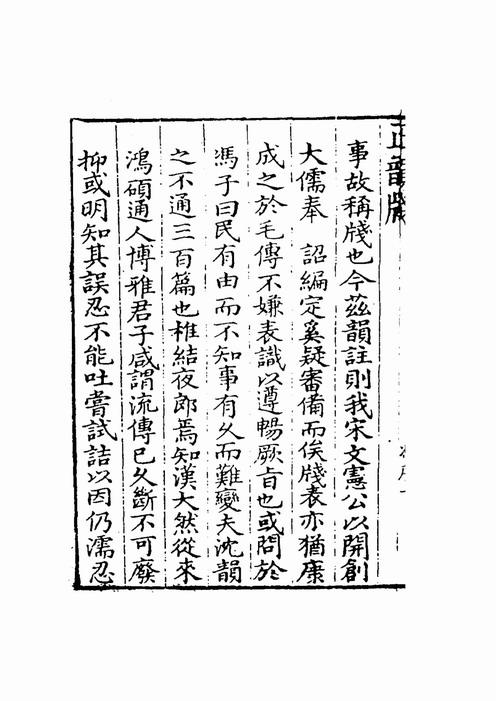 正韻牋
事故稱牋也今茲韻註則我宋文憲公以開創
大儒奉　詔編定奚疑審備而俟牋表亦猶康
成之於毛傳不嫌表識以遵暢厥旨也或問於
馮子曰民有由而不知事有久而難變夫沈韻
之不通三百篇也椎結夜郎焉知漢大然從來
鴻碩通人博雅君子咸謂流傳已久斷不可廢
抑或明知其誤忍不能吐嘗試詰以因仍濡忍